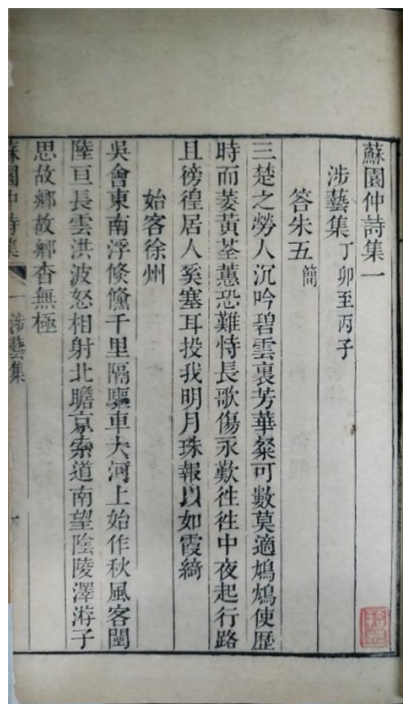 蘇園仲詩集一
涉藝集丁卯至丙子
答朱五簡
三楚之勞人沉吟碧雲裏芳華粲可數莫適鴆鴆使歷
時而菱黃荃蕙恐難恃長歌傷永歎徃徃中夜起行路
且徬徨居人奚塞耳投我明月珠報以如霞綺
始客徐州
吳會東南浮倐儵千里隔驅車大河上始作秋風客閨
陸亘長雲洪波怒相射北瞻京索道南望陰陵澤游子
思故鄉故鄉杳無極
蘇園仲詩集
一
涉藝集